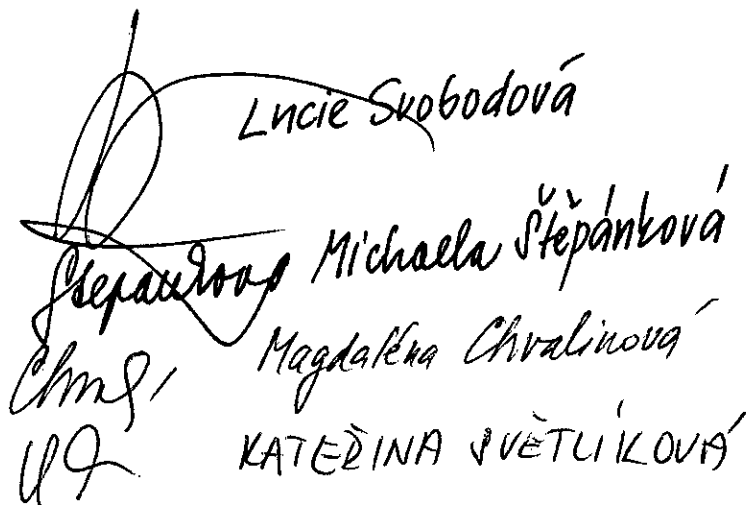 Lucie Svobodová
Štěpánková Michaela Štěpánková
Magdaléna Chvalinová
KATEŘINA SVĚTLÍKOVÁ